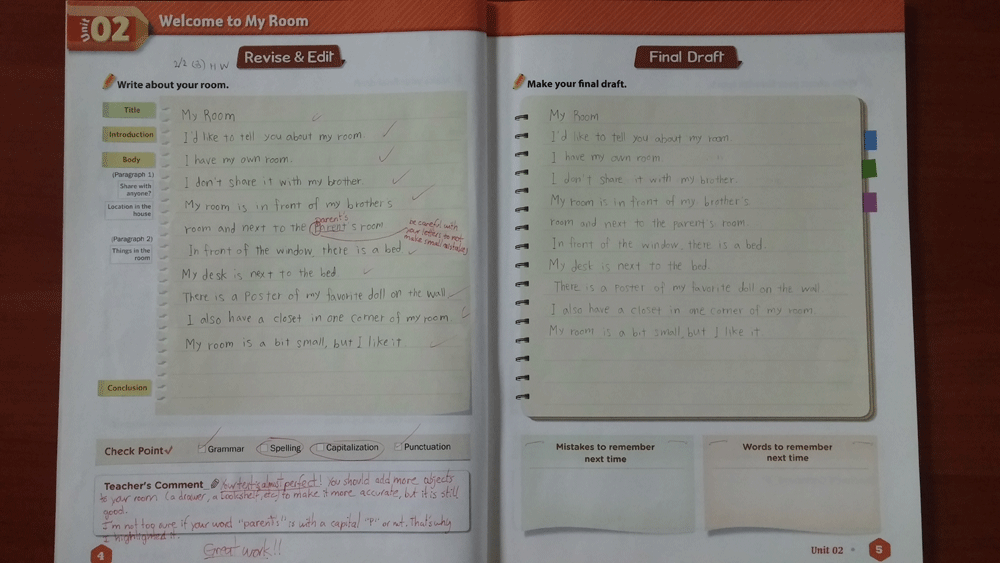 Unit 02 Welcome to My Room
Revise & Edit
2/2 (3) HW
Write about your room.
Title
Introduction
Body
(Paragraph 1)
Share with
anyone?
Location in the
house
(Paragraph 2)
Things in the
room
Conclusion
My Room
I'd like to tell you about my room.
I have my own room.
I don't share it with my brother.
My room is in front of my brother's
parent's
room and next to the Parent's room
be careful with
your letters to not
make small mistakes
In front of the window, there is a bed
My desk is next to the bed.
There is a poster of my favorite doll on the wall
I also have a closet in one corner of my room.
My room is a bit small, but I like it
Check Point
Grammar
Spelling
Capitalization
Punctuation
Teacher's Comment Your text is almost perfect! You should add more objects
to your room (a drawer, a bookshelf, etc) to make it more accurate, but it is still
good.
I'm not too sure if your word "parent's" is with a capital "P" or not. That's why
I highlighted it.
Great work!!
4
Final Draft
Make your final draft.
My Room
I'd like to tell you about my room.
I have my own room
I don't share it with my brother.
My room is in front of my brother's
room and next to the parent's room.
In front of the window, there is a bed.
My desk is next to the bed.
There is a poster of my favorite doll on the wall.
I also have a closet in one corner of my room.
My room is a bit small, but I like it
Mistakes to remember
next time
Words to remember
next time
Unit 02
5